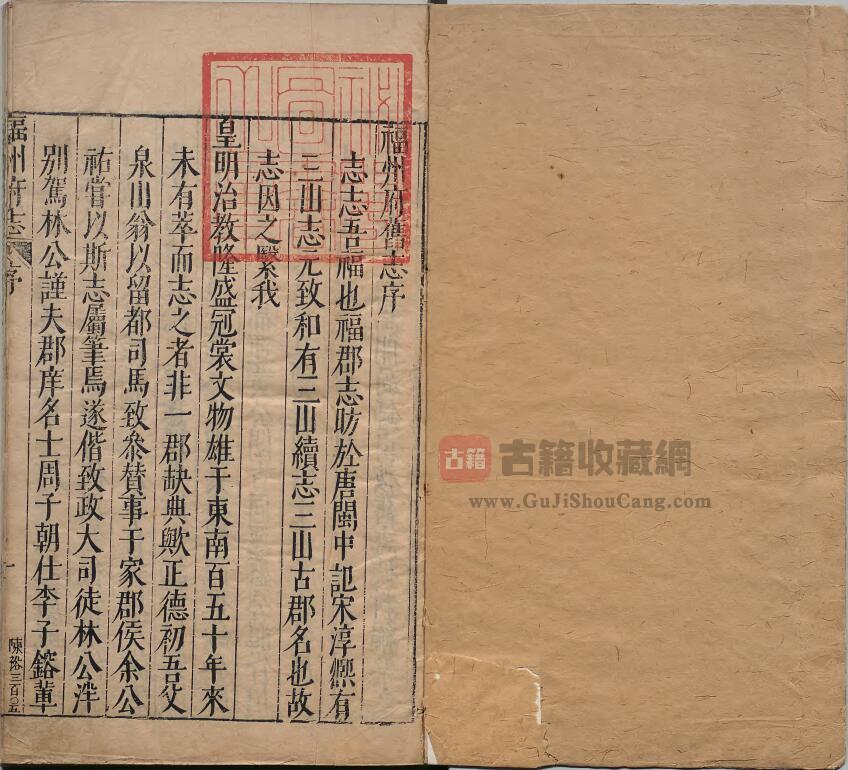 福州府舊志序
志志吾福也福郡志昉於唐閩中記宋淳熈有
三山志元致和有三山續志三山古郡名也故
志因之繄我
皇明治教隆盛冠裳文物雄于東南百五十年來
未有萃而志之者非一郡缺典歟正德初吾父
泉山翁以留都司馬致叅贊事于家郡侯余公
祐嘗以斯志屬筆焉遂偕致政大司徒林公泮
別駕林公謹夫郡庠名士周子朝仕李子鎔軰
福州府志 序
一
陳裕三百〇五
古籍
古籍收藏網
www.GuJiShouCang.com